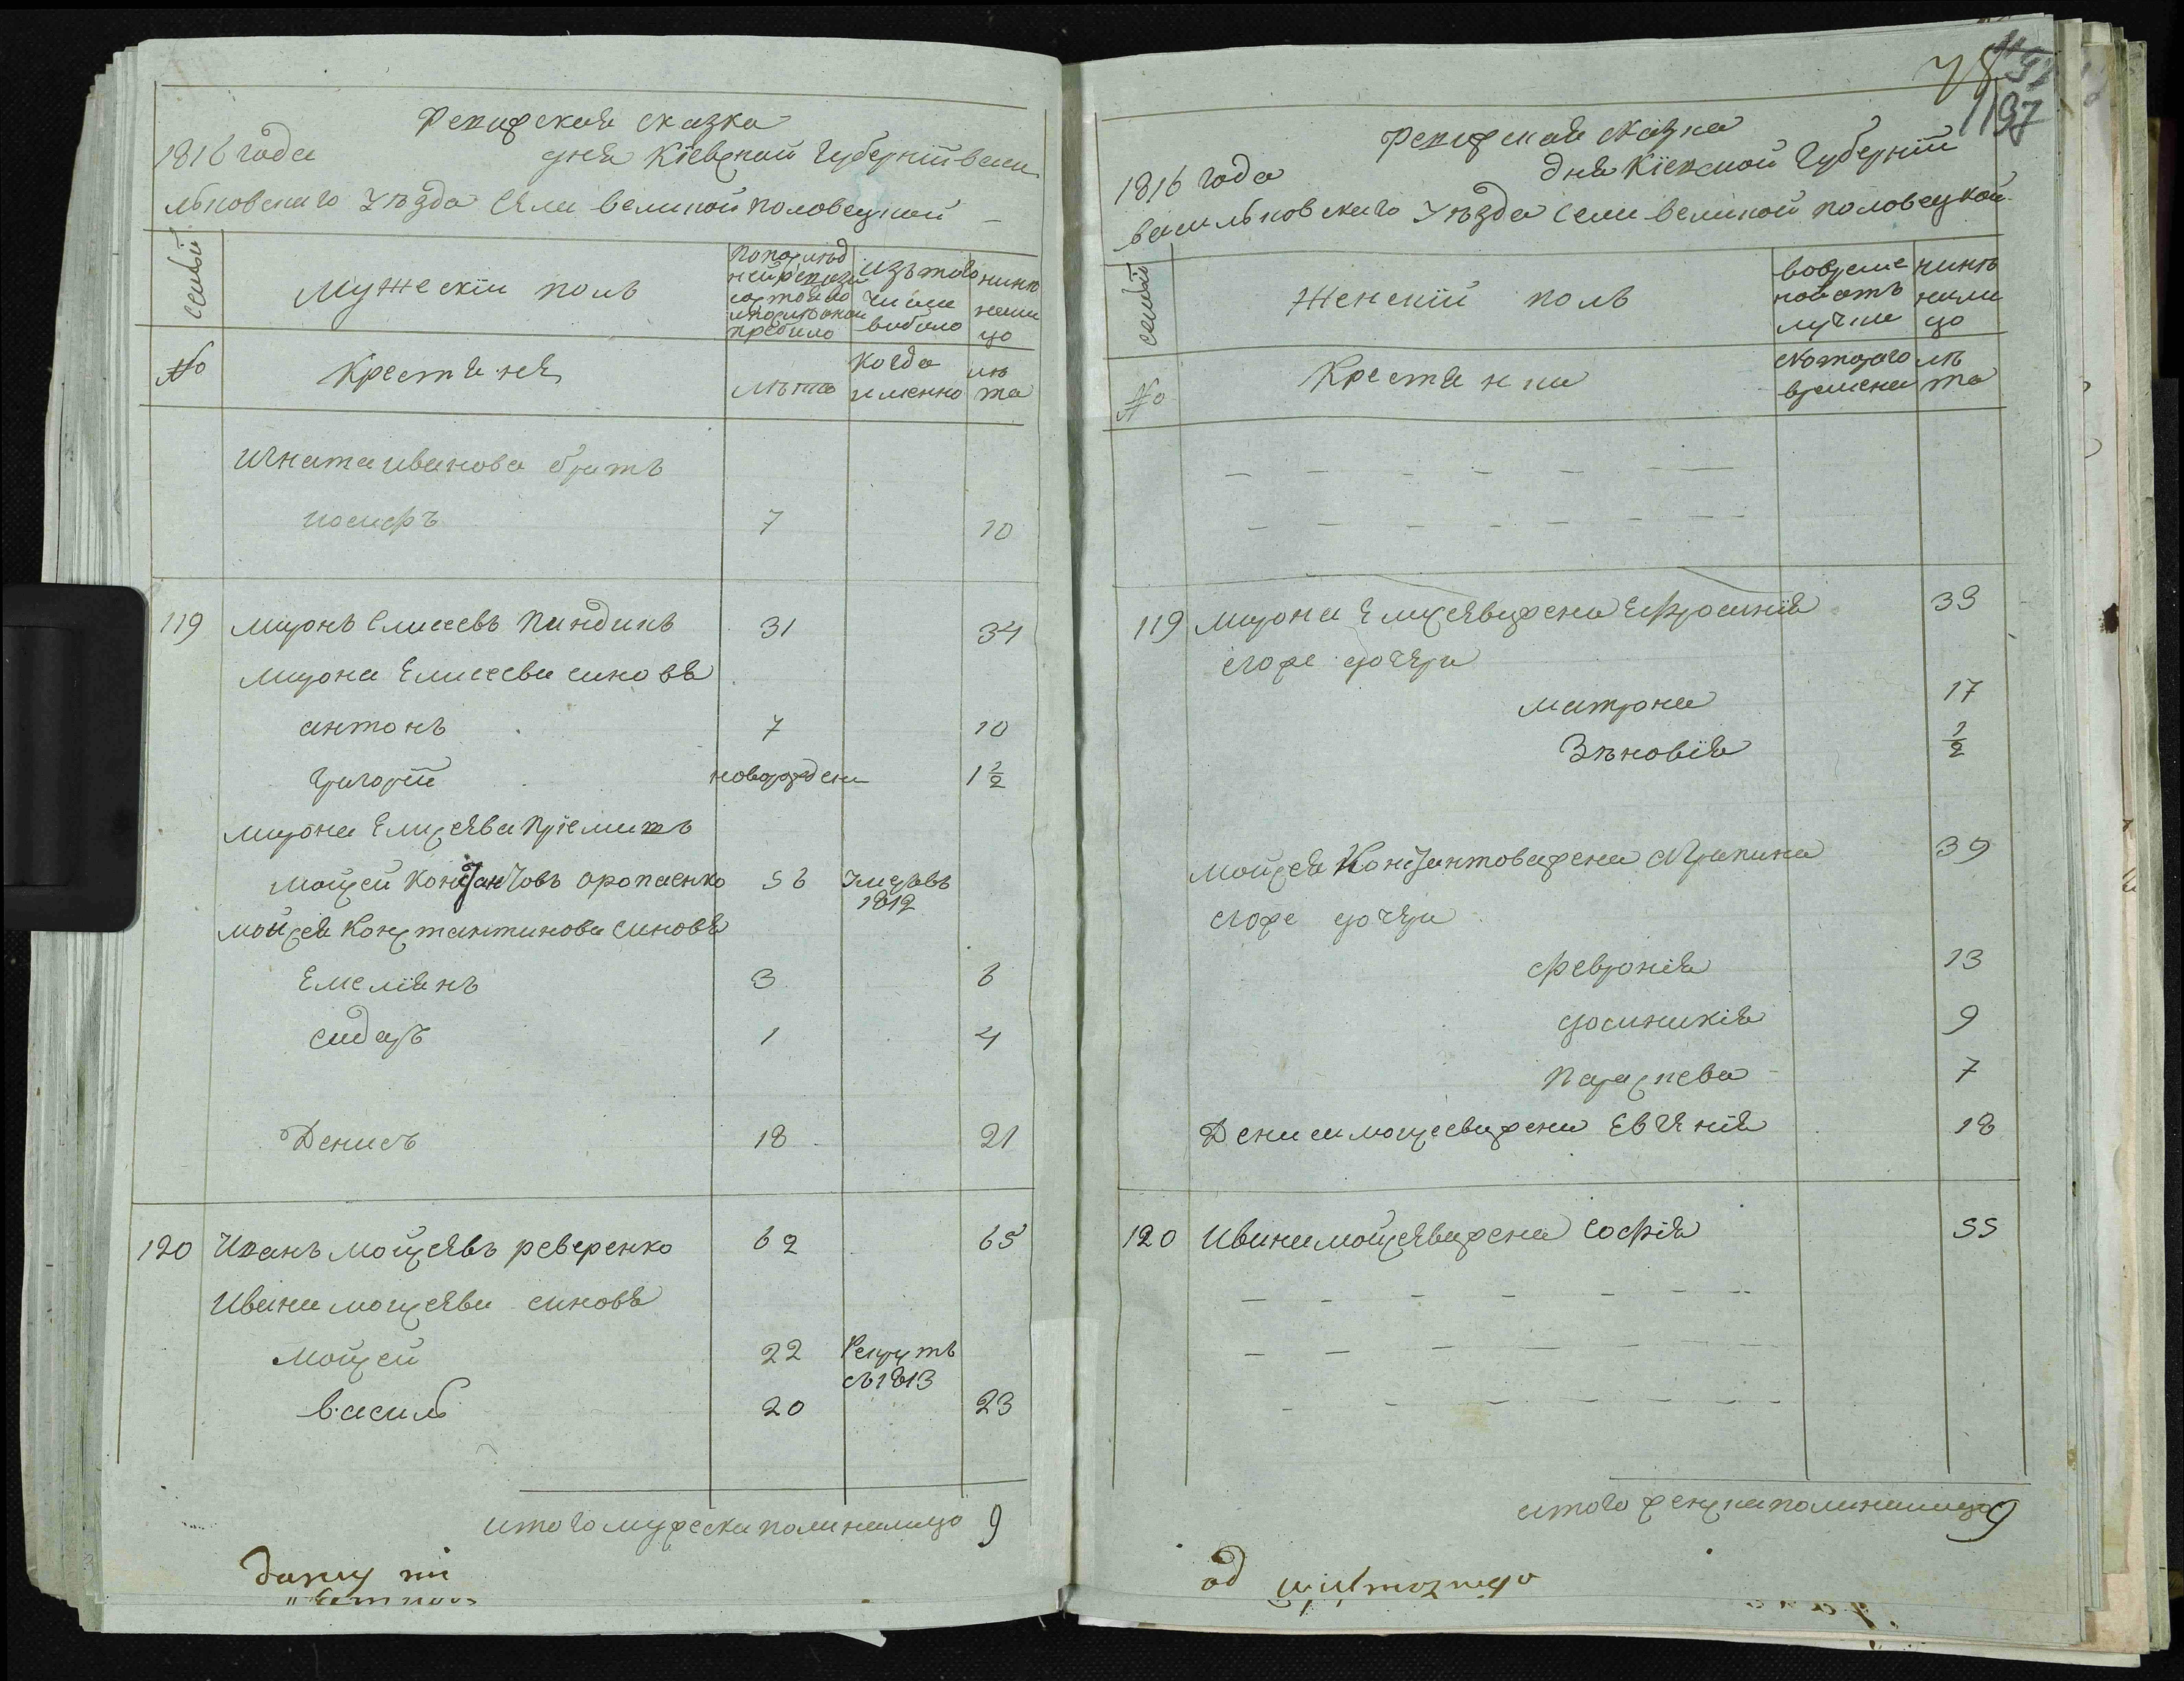 Ревизская сказка
1816 года дня Кіевской Губерніи васи
льковскаго Уѣзда Села великой половецкой
семьи
Мужескїи полъ
По послѣд
ней ревизи
состояло
и послѣ оной
прибыло
изъ того
числа
выбыло
нынѣ
нали
цо
№
Крестяня
лѣта
Когда
именно
лѣ
та
Игната иванова братъ
иосифъ 7 10
119 миронъ Елисеевъ Пиндикъ 31 34
мирона Елисеева синовя
антонъ 7 10
григорїй новорожден 1 1/2
мирона Елисѣева прїемишъ
мойсей Константовъ оропаенко 56 Умеръвъ
1812
мойсея Константинова синовя
Емелїянъ 3 6
сидоръ 1 4
Денисъ 18 21
120 Иванъ мойсѣявъ реверенко 62 65
Ивана мойсеява синовя
мойсей 22 Рекрутъ
съ1813
василь 20 23
итого мужеска пола налицо 9
78
1197
Ревизская сказка
1816 года дня Кіевской Губерніи
васильковскаго Уѣзда села великой половецкой
семьи
Женскїй полъ
вовреме
ной отъ
лучки
нинѣ
нали
цо
№
Крестянки
скотораго
времени
лѣ
та
119 мирона Елисеява жена Ефросинїя 33
егоже дочери
матрона 17
Зѣновїя 1/2
мойсея Константова жена Агрипина 39
егоже дочери
февронїя 13
досикикїя 9
параскева 7
Дениса мойсеева жена Евгенїя 18
120 Ивана мойсеява жена софїя 55
итого женска пола налицо 9
од